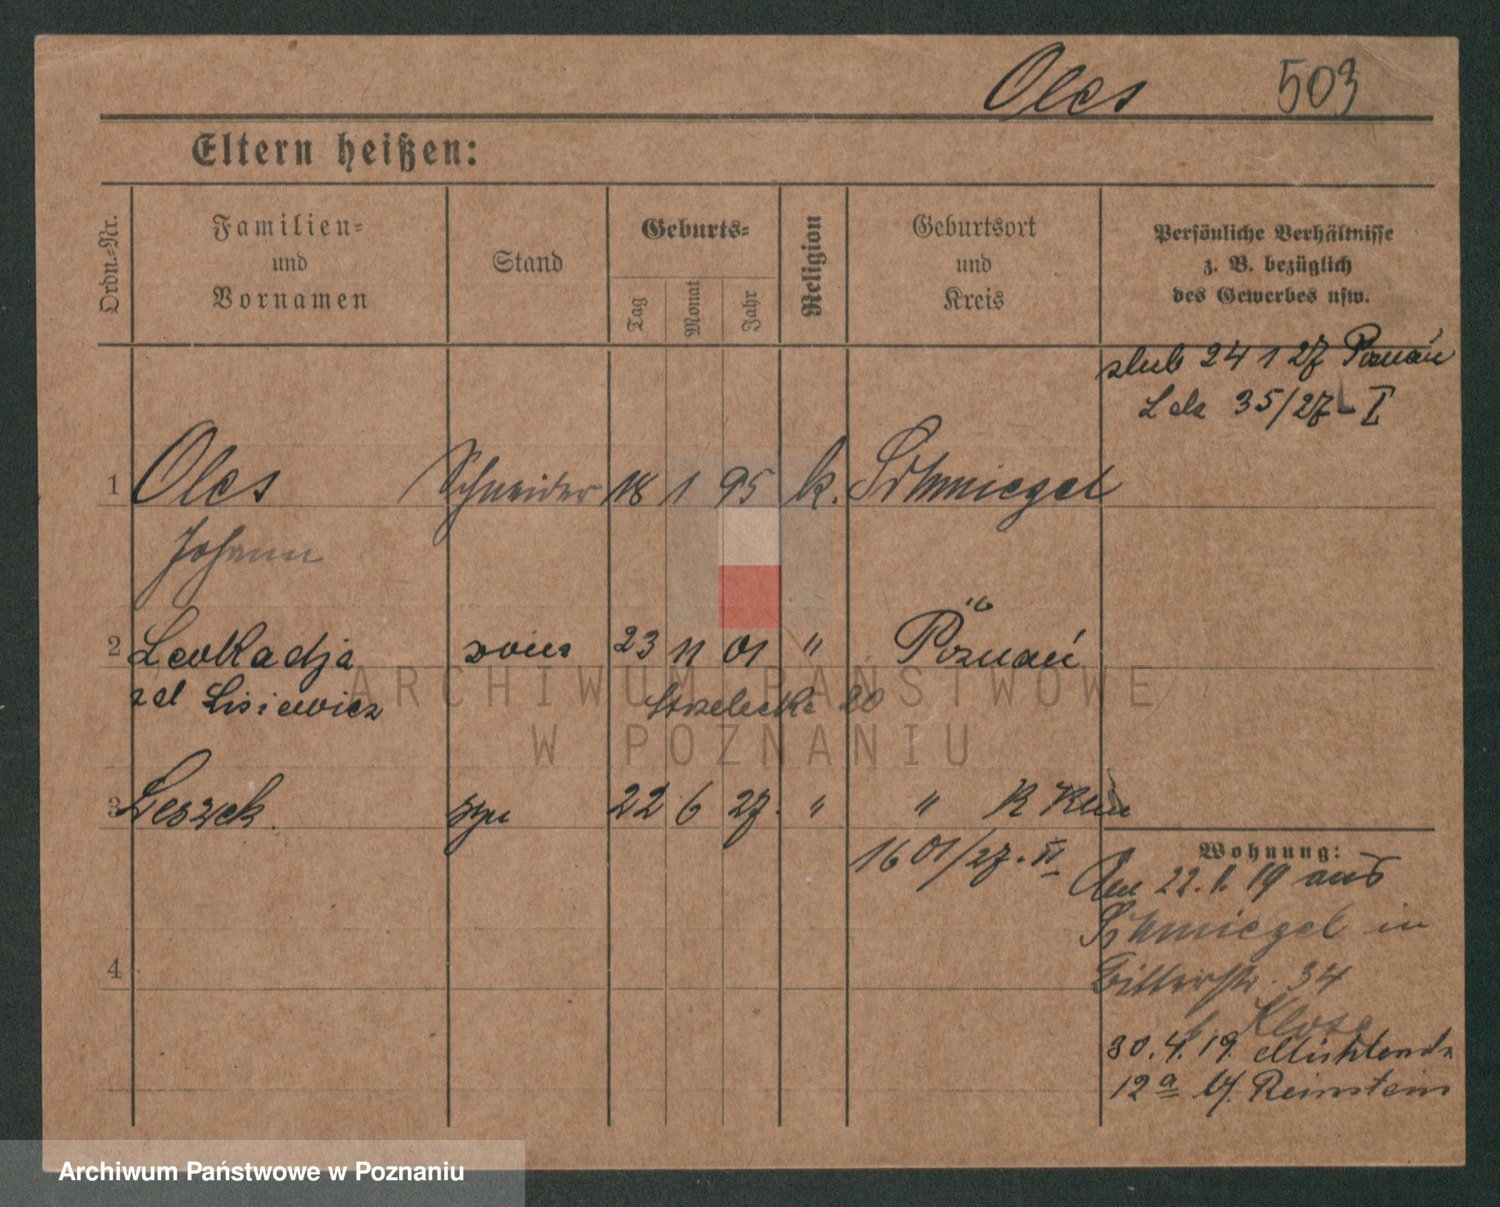 Oles 503
Eltern heißen:
Ordn.-Nr.
Familien-
und
Vornamen
Stand
Geburts-
Tag
Monat
Jahr
Religion
Geburtsort
und
Kreis
Persönliche Verhältnisse
z. B. bezüglich
des Gewerbes usw.
ślub 24 1 27 Poznań
35/27 I
1 Oles Schneider 18 1 95 k. Schmiegel
Johann
2 Leokadja 23 11 01 " Poznań
zd Lisiewicz Strzelecka 20
3 Leszek syn 22 6 27 " " K
1601/27. II
Wohnung:
Am 22.1.19 aus
Schmiegel in
Ritterstr. 34
b. Klose
30.4.19.
12a b/ Reinstein
4
ARCHIWUM PAŃSTWOWE
W POZNANIU
Archiwum Państwowe w Poznaniu